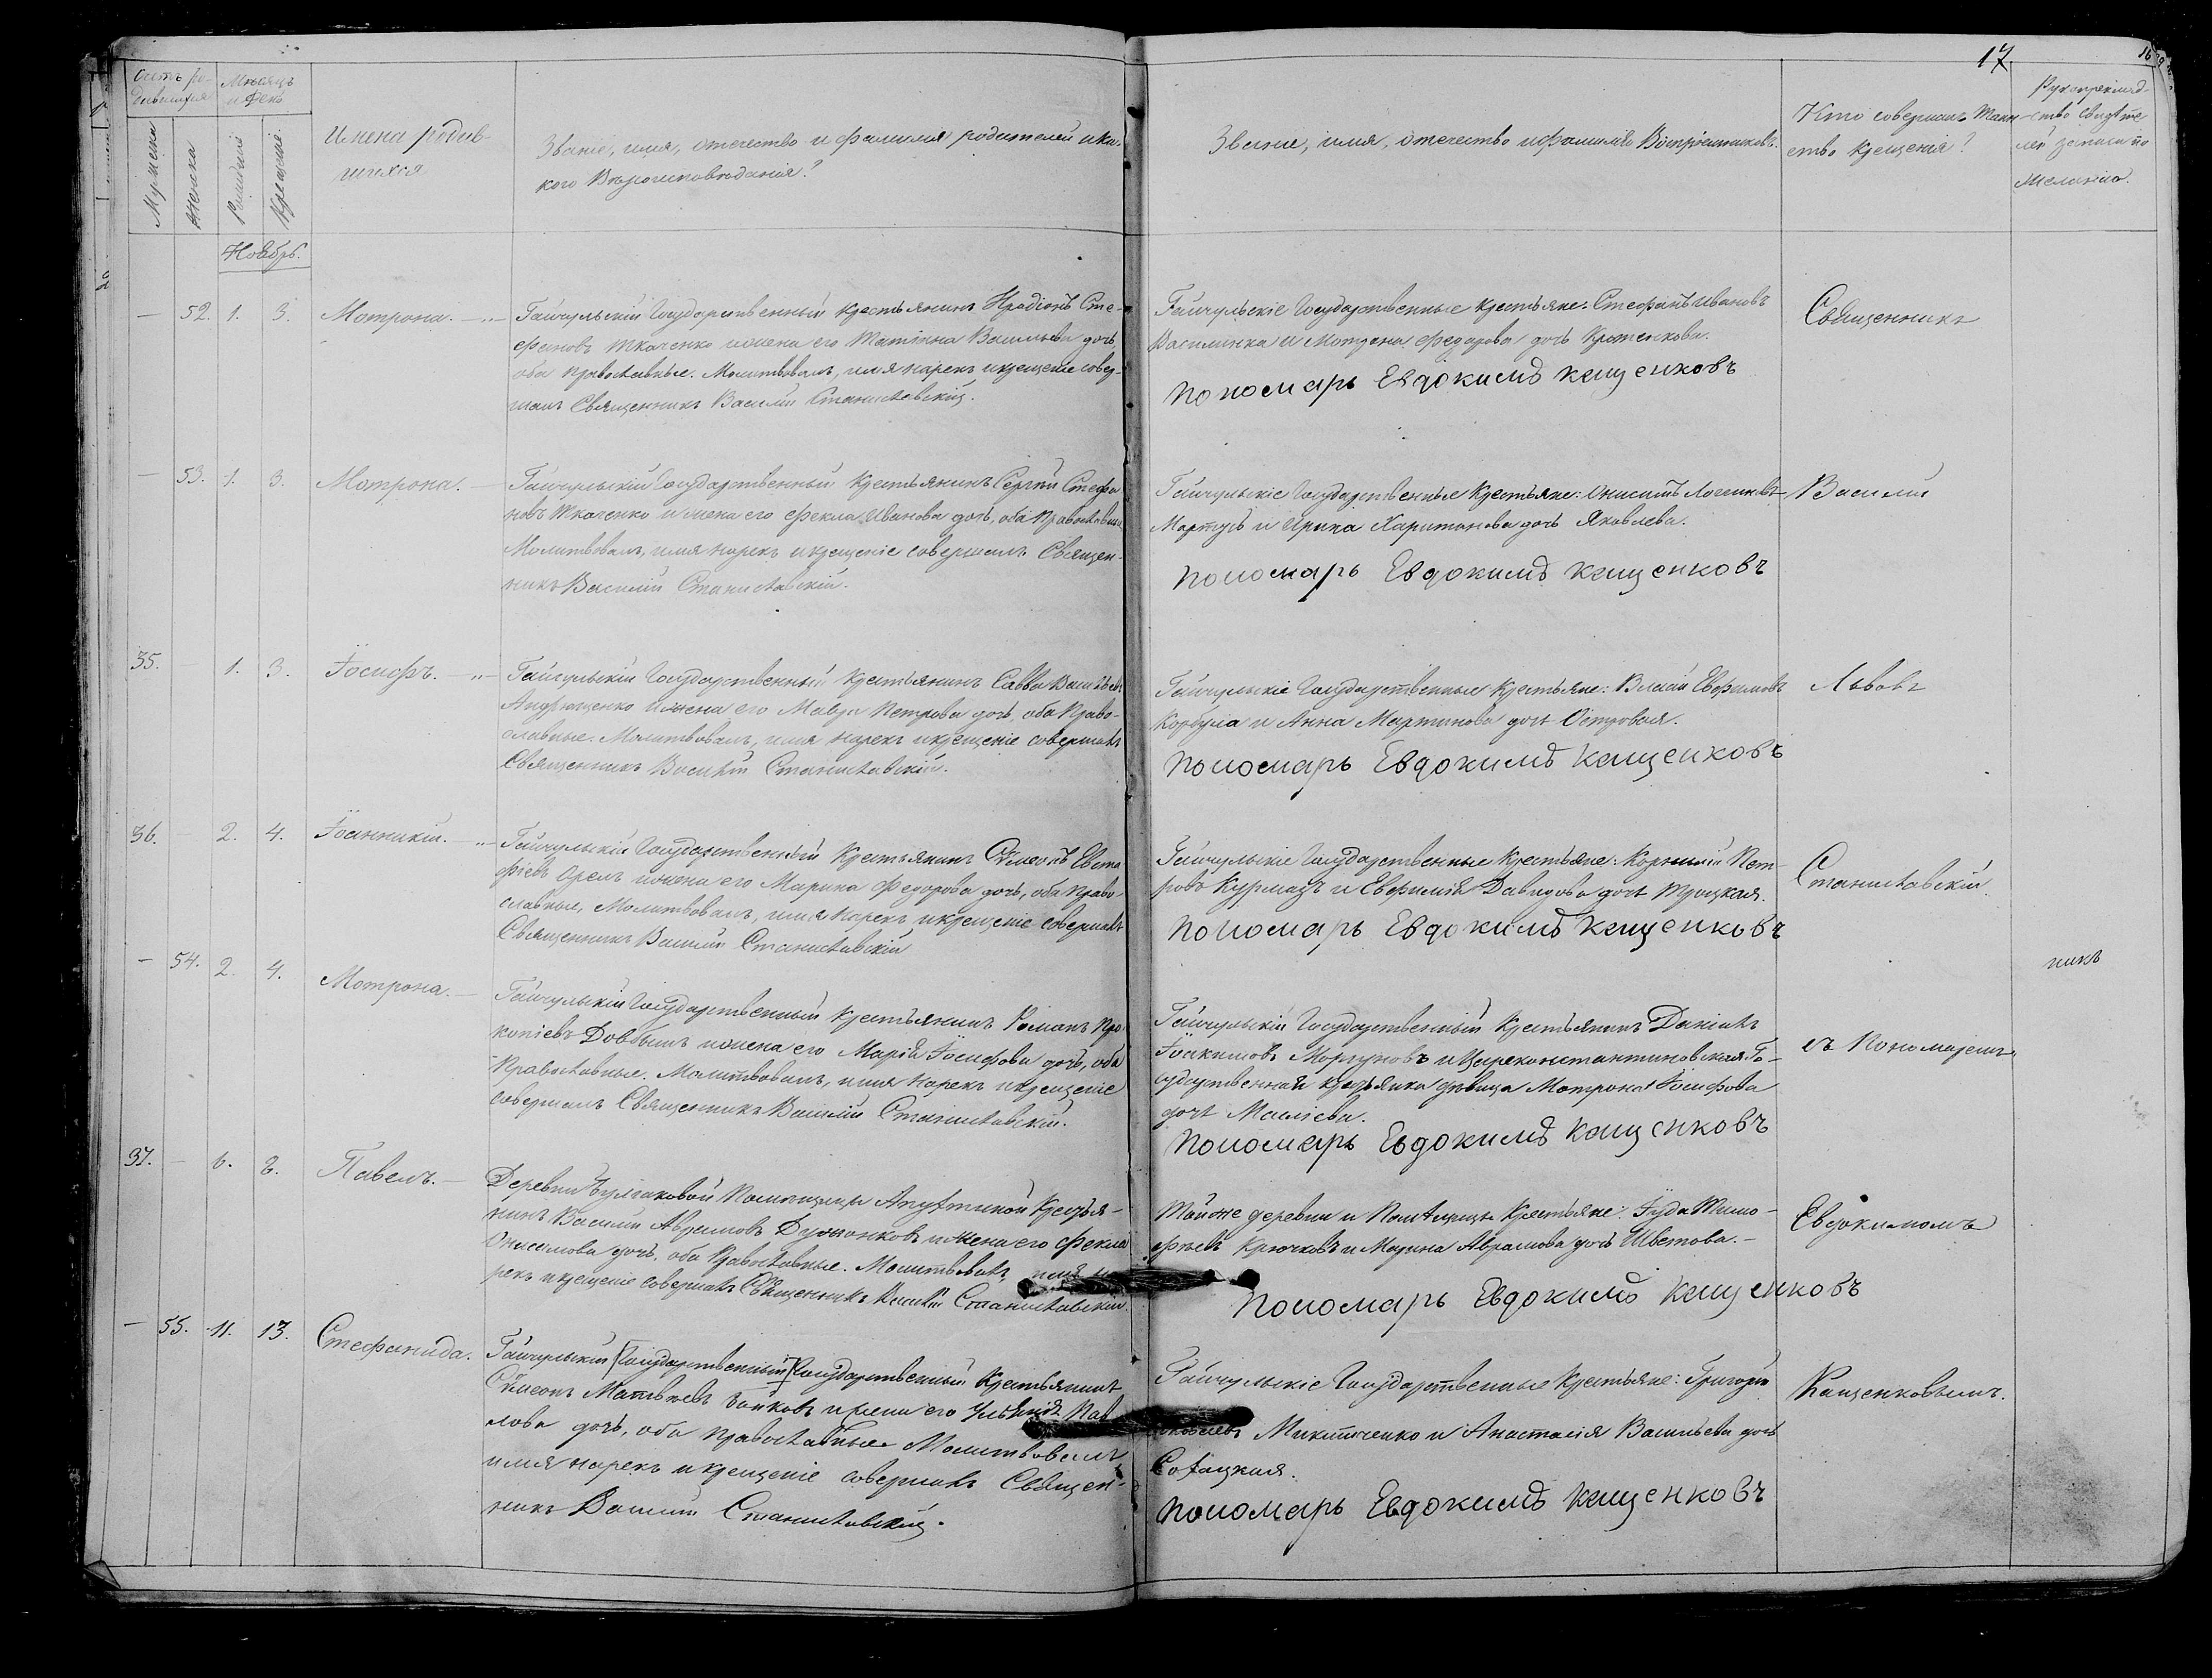 17
Счетъ ро-
дившихся
Мѣсяцъ
и День
Мужеска
Женска
Рожденія
Крещенія
Имена родив-
шихся
Званіе, имя, отечество и фамилія родителей и ка-
кого Вѣроисповѣданія?
Званіе, имя, отечество и фамилія Воспріемниковъ.
Кто совершалъ Таин-
ство Крещенія?
Рукоприклад-
ство свидѣте
лей записи по
желанію.
Ноябрь.
— 52. 1. 3. Мотрона.
Гайчульскій Государственный крестьянинъ Иродіонъ Сте-
фановъ Ткаченко и жена его Татіана Васильева дочь,
оба православные. Молитвовалъ, имя нарекъ и крещеніе совер-
шалъ Священникъ Василій Станиславскій.
Гайчульскіе Государственные крестьяне: Стефанъ Ивановъ
Василинка и Мотрона Федорова дочь Кротенкова.
Пономарь Евдокимъ Кащенковъ
Священникъ
— 53. 1. 3. Мотрона.
Гайчульскій Государственный крестьянинъ Сергій Стефа
новъ Ткаченко и жена его Фекла Иванова дочь, оба православные
Молитвовалъ, имя нарекъ и крещеніе совершалъ Священ-
никъ Василій Станиславскій.
Гайчульскіе Государственные Крестьяне: Онисимъ Логиновъ
Мартусь и Ирина Харитонова дочь Яковлева.
Пономарь Евдокимъ Кащенковъ
Василій
35. — 1. 3. Іосифъ.
Гайчульскій Государственный крестьянинъ Савва Васильевъ
Андрющенко и жена его Мавра Петрова дочь, оба Право-
славные. Молитвовалъ, имя нарекъ и крещеніе совершалъ
Священникъ Василій Станиславскій.
Гайчульскіе Государственные крестьяне: Власій Евфимовъ
Корбула и Анна Мартинова дочь Островая.
Пономарь Евдокимъ Кащенковъ
Львовъ
36. — 2. 4. Іоанникій.
Гайчульскій Государственный Крестьянинъ Симеонъ Евста
фіевъ Орелъ и жена его Марина Федорова дочь, оба Право-
славные, Молитвовалъ, имя нарекъ и крещеніе совершалъ
Священникъ Василій Станиславскій
Гайчульскіе Государственные Крестьяне: Корнилій Пет-
ровъ Курмазъ и Евфимія Давидова дочь Троцкая.
Пономарь Евдокимъ Кащенковъ
Станиславскій.
— 54. 2. 4. Мотрона.
Гайчульскій Государственный Крестьянинъ Романъ Про
копіевъ Довбышъ и жена его Марія Іосифова дочь, оба
Православные. Молитвовалъ, имя нарекъ и крещеніе
совершалъ Священникъ Василій Станиславскій.
Гайчульскій Государственный Крестьянинъ Даніилъ
Іоакимовъ Моргуновъ и Цареконстантиновская Го-
сударственная крестьянка дѣвица Мотрона Іосифова
дочь Маліева.
Пономарь Евдокимъ Кащенковъ
съ Пономаремъ
никъ
37. — 6. 8. Павелъ.
Деревни Булгаковой Помѣщицы Апухтиной Крестья-
нинъ Василій Аврамовъ и жена его Фекла
Онисимова дочь, оба Православные. Молитвовалъ, имя на
рекъ и крещеніе совершалъ Священникъ Василій Станиславскій.
Той же деревни и Помѣщицы Крестьяне: Іуда Тимо-
феевъ Крючковъ и Марина Аврамова дочь Шветова.
Пономарь Евдокимъ Кащенковъ
Евдокимомъ
— 55. 11. 13. Стефанида.
Гайчульскій [Государственный] Государственный Крестьянинъ
Симеонъ Матвѣевъ Байковъ и жена его Ульянія Пав
лова дочь, оба православные Молитвовалъ
имя нарекъ и крещеніе совершалъ Священ-
никъ Василій Станиславскій.
Гайчульскіе Государственные Крестьяне: Григорій
Яковлевъ Микитченко и Анастасія Васильева дочь
Сотацкая.
Пономарь Евдокимъ Кащенковъ
Кащенковымъ.